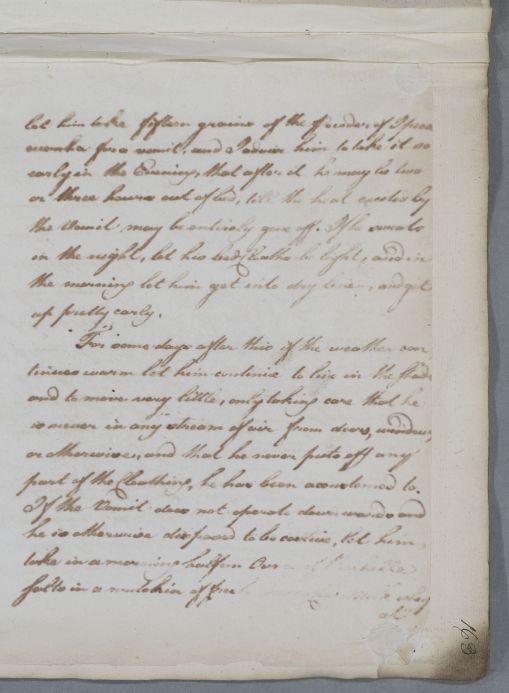 let him take fifteen grains of the powder of Ipeca
cuanha for a vomit, and I advise him to take it so
early in the Evening, that after it he may be two
or three hours out of bed, till the heat excited by
the Vomit may be entirely gone off. If he sweats
in the night, let his bed Cloaths be light, and in
the morning let him get into dry linen, and get
up pretty early.
For some days after this if the weather con
tinues warm let him continue to live in the Shade
and to move very little, only taking care that he
is never in any stream of air from doors, windows,
or otherwise, and that he never puts off any
part of the Cloathing, he has been accustomed to.
If the Vomit does not operate downwards and
he is otherwise disposed to be costive, let him
take in a morning half an Ounce of Rochelle
salts in a mutchkin of fresh milk whey
163